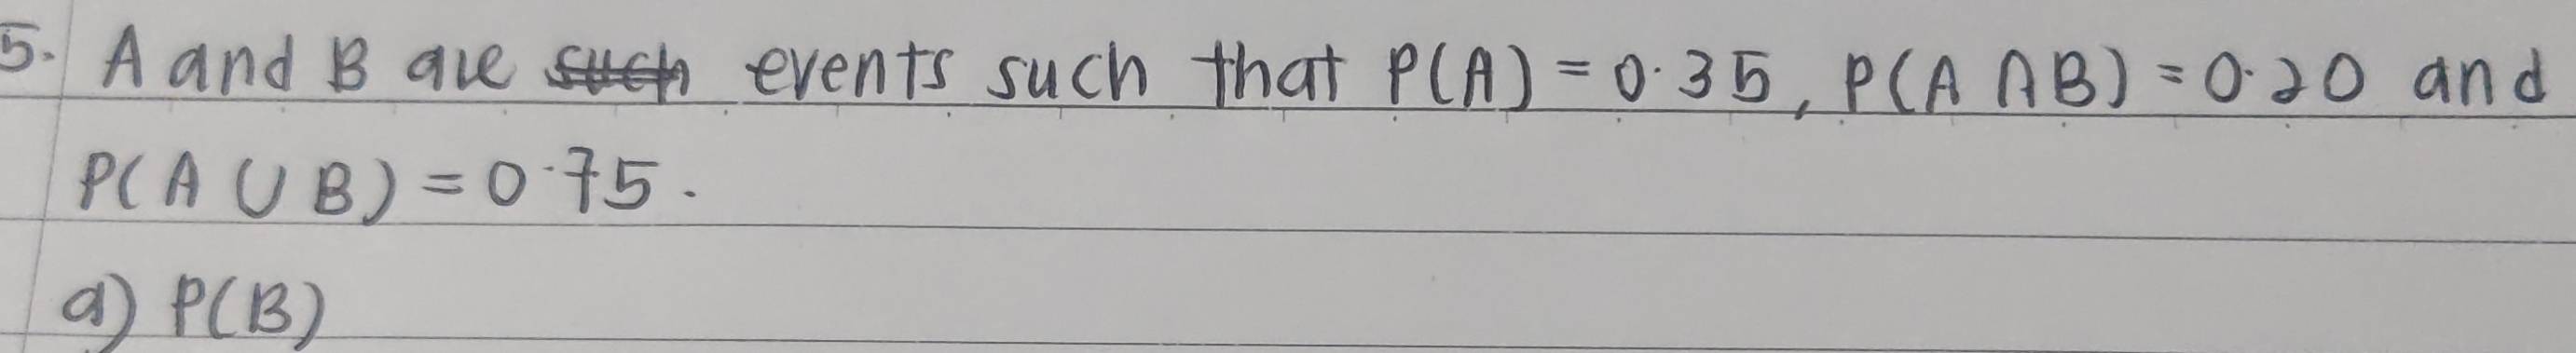 5. A and B are such events such that P(A) = 0.35, P(A ∩ B) = 0.20 and
P(A ∪ B) = 0.75.
a) P(B)